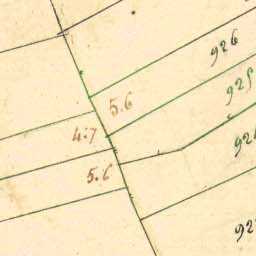 926
5.6
925
4:7
5.6